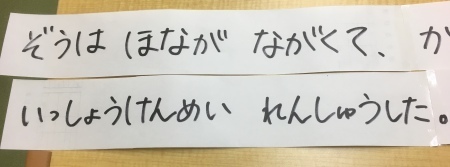 ぞうは はなが ながくて、か
いっしょうけんめい れんしゅうした。